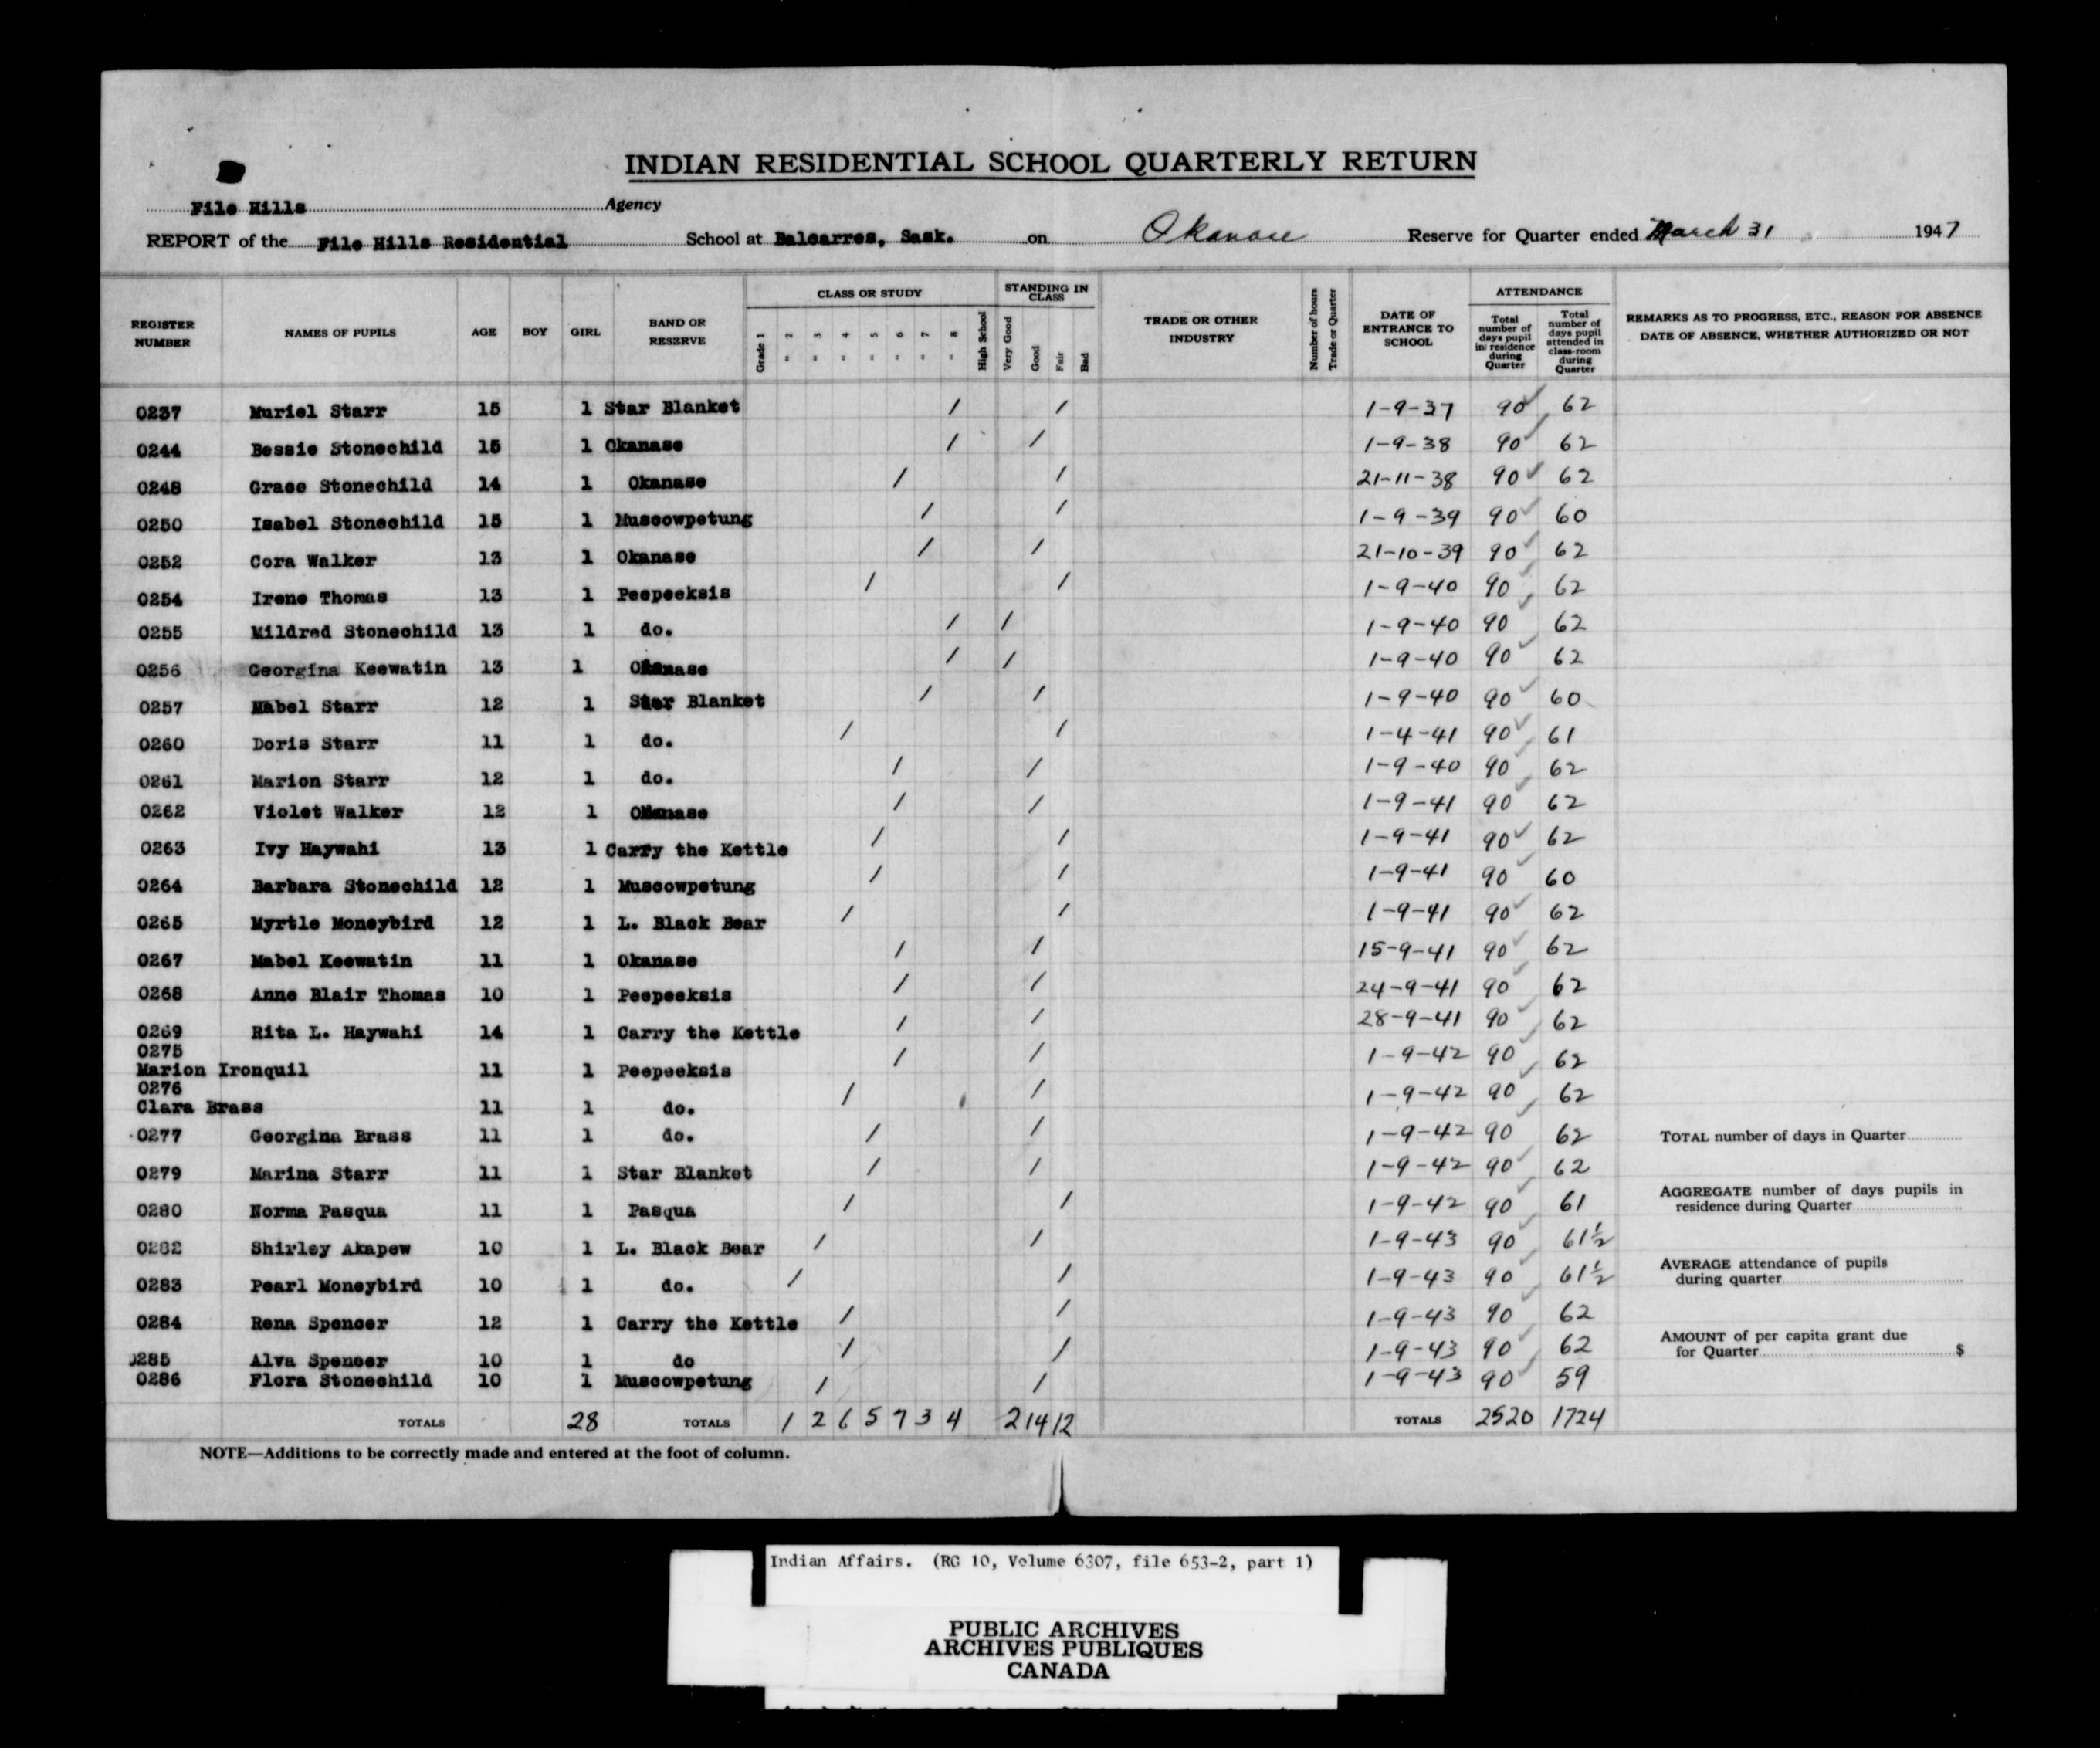 INDIAN RESIDENTIAL SCHOOL QUARTERLY RETURN
File Hills Agency
REPORT of the File Hills Residential School at Balcarres, Sask. on Okanase Reserve for Quarter ended March 31 1947
REGISTER NUMBER NAMES OF PUPILS AGE BOY GIRL BAND OR RESERVE CLASS OR STUDY Grade 1 " 2 " 3 " 4 " 5 " 6 " 7 " 8 High School STANDING IN CLASS Very Good Good Fair Bad TRADE OR OTHER INDUSTRY Number of hours Trade or Quarter DATE OF ENTRANCE TO SCHOOL ATTENDANCE Total number of days pupil in residence during Quarter Total number of days pupil attended in class-room during Quarter REMARKS AS TO PROGRESS, ETC., REASON FOR ABSENCE DATE OF ABSENCE, WHETHER AUTHORIZED OR NOT
0237 Muriel Starr 15 1 Star Blanket / / 1-9-37 90 62
0244 Bessie Stonechild 15 1 Okanase / / 1-9-38 90 62
0248 Grace Stonechild 14 1 Okanase / / 21-11-38 90 62
0250 Isabel Stonechild 15 1 Muscowpetung / / 1-9-39 90 60
0252 Cora Walker 13 1 Okanase / / 21-10-39 90 62
0254 Irene Thomas 13 1 Peepeeksis / / 1-9-40 90 62
0255 Mildred Stonechild 13 1 do. / / 1-9-40 90 62
0256 Georgina Keewatin 13 1 Okanase / / 1-9-40 90 62
0257 Mabel Starr 12 1 Star Blanket / / 1-9-40 90 60
0260 Doris Starr 11 1 do. / / 1-4-41 90 61
0261 Marion Starr 12 1 do. / / 1-9-40 90 62
0262 Violet Walker 12 1 Okanase / / 1-9-41 90 62
0263 Ivy Haywahi 13 1 Carry the Kettle / / 1-9-41 90 62
0264 Barbara Stonechild 12 1 Muscowpetung / / 1-9-41 90 60
0265 Myrtle Moneybird 12 1 L. Black Bear / / 1-9-41 90 62
0267 Mabel Keewatin 11 1 Okanase / / 15-9-41 90 62
0268 Anne Blair Thomas 10 1 Peepeeksis / / 24-9-41 90 62
0269 Rita L. Haywahi 14 1 Carry the Kettle / / 28-9-41 90 62
0275
Marion Ironquil 11 1 Peepeeksis / / 1-9-42 90 62
0276
Clara Brass 11 1 do. / / 1-9-42 90 62
0277 Georgina Brass 11 1 do. / / 1-9-42 90 62 TOTAL number of days in Quarter
0279 Marina Starr 11 1 Star Blanket / / 1-9-42 90 62
0280 Norma Pasqua 11 1 Pasqua / / 1-9-42 90 61 AGGREGATE number of days pupils in residence during Quarter
0282 Shirley Akapew 10 1 L. Black Bear / / 1-9-43 90 61½
0283 Pearl Moneybird 10 1 do. / / 1-9-43 90 61½ AVERAGE attendance of pupils during quarter
0284 Rena Spencer 12 1 Carry the Kettle / / 1-9-43 90 62
0285 Alva Spencer 10 1 do / / 1-9-43 90 62 AMOUNT of per capita grant due for Quarter $
0286 Flora Stonechild 10 1 Muscowpetung / / 1-9-43 90 59
TOTALS 28 TOTALS 1 2 6 5 7 3 4 2 14 12 TOTALS 2520 1724
NOTE—Additions to be correctly made and entered at the foot of column.
Indian Affairs. (RG 10, Volume 6307, file 653-2, part 1)
PUBLIC ARCHIVES
ARCHIVES PUBLIQUES
CANADA